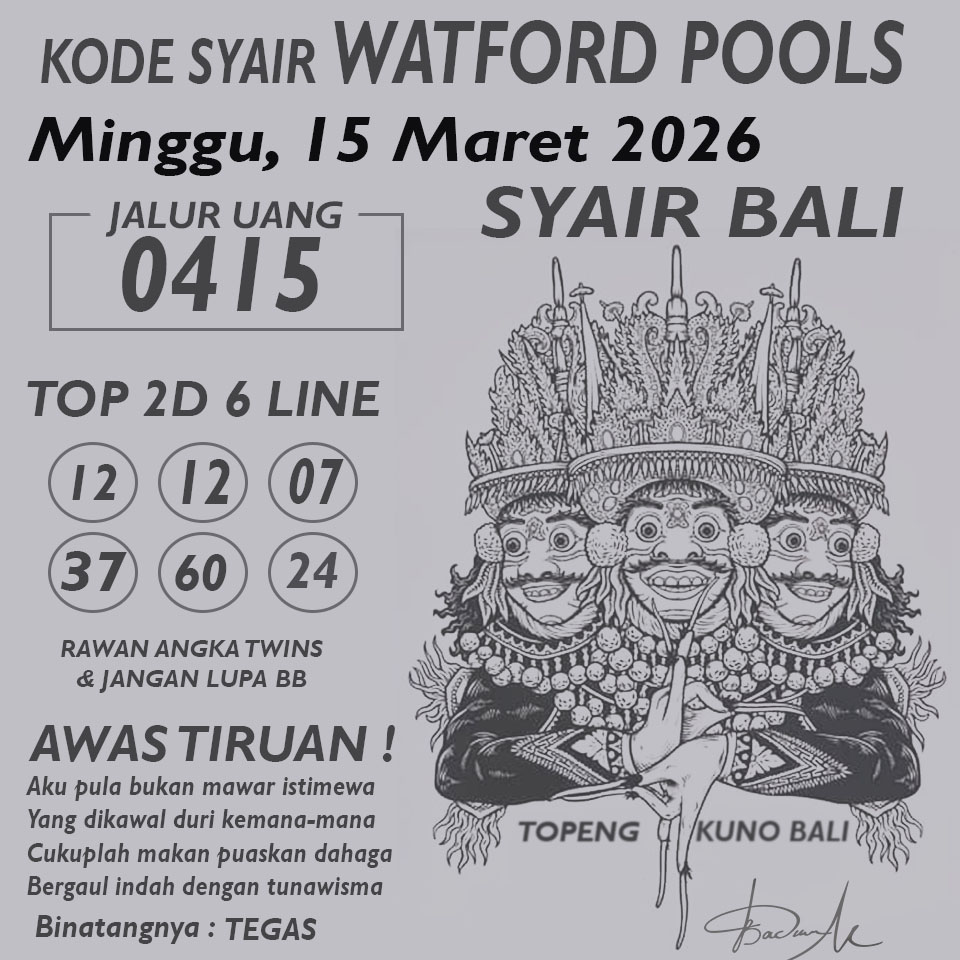 KODE SYAIR WATFORD POOLS
Minggu, 15 Maret 2026
SYAIR BALI
JALUR UANG
0415
TOP 2D 6 LINE
12 12 07
37 60 24
RAWAN ANGKA TWINS
& JANGAN LUPA BB
AWAS TIRUAN !
Aku pula bukan mawar istimewa
Yang dikawal duri kemana-mana
Cukuplah makan puaskan dahaga
Bergaul indah dengan tunawisma
Binatangnya : TEGAS
TOPENG KUNO BALI